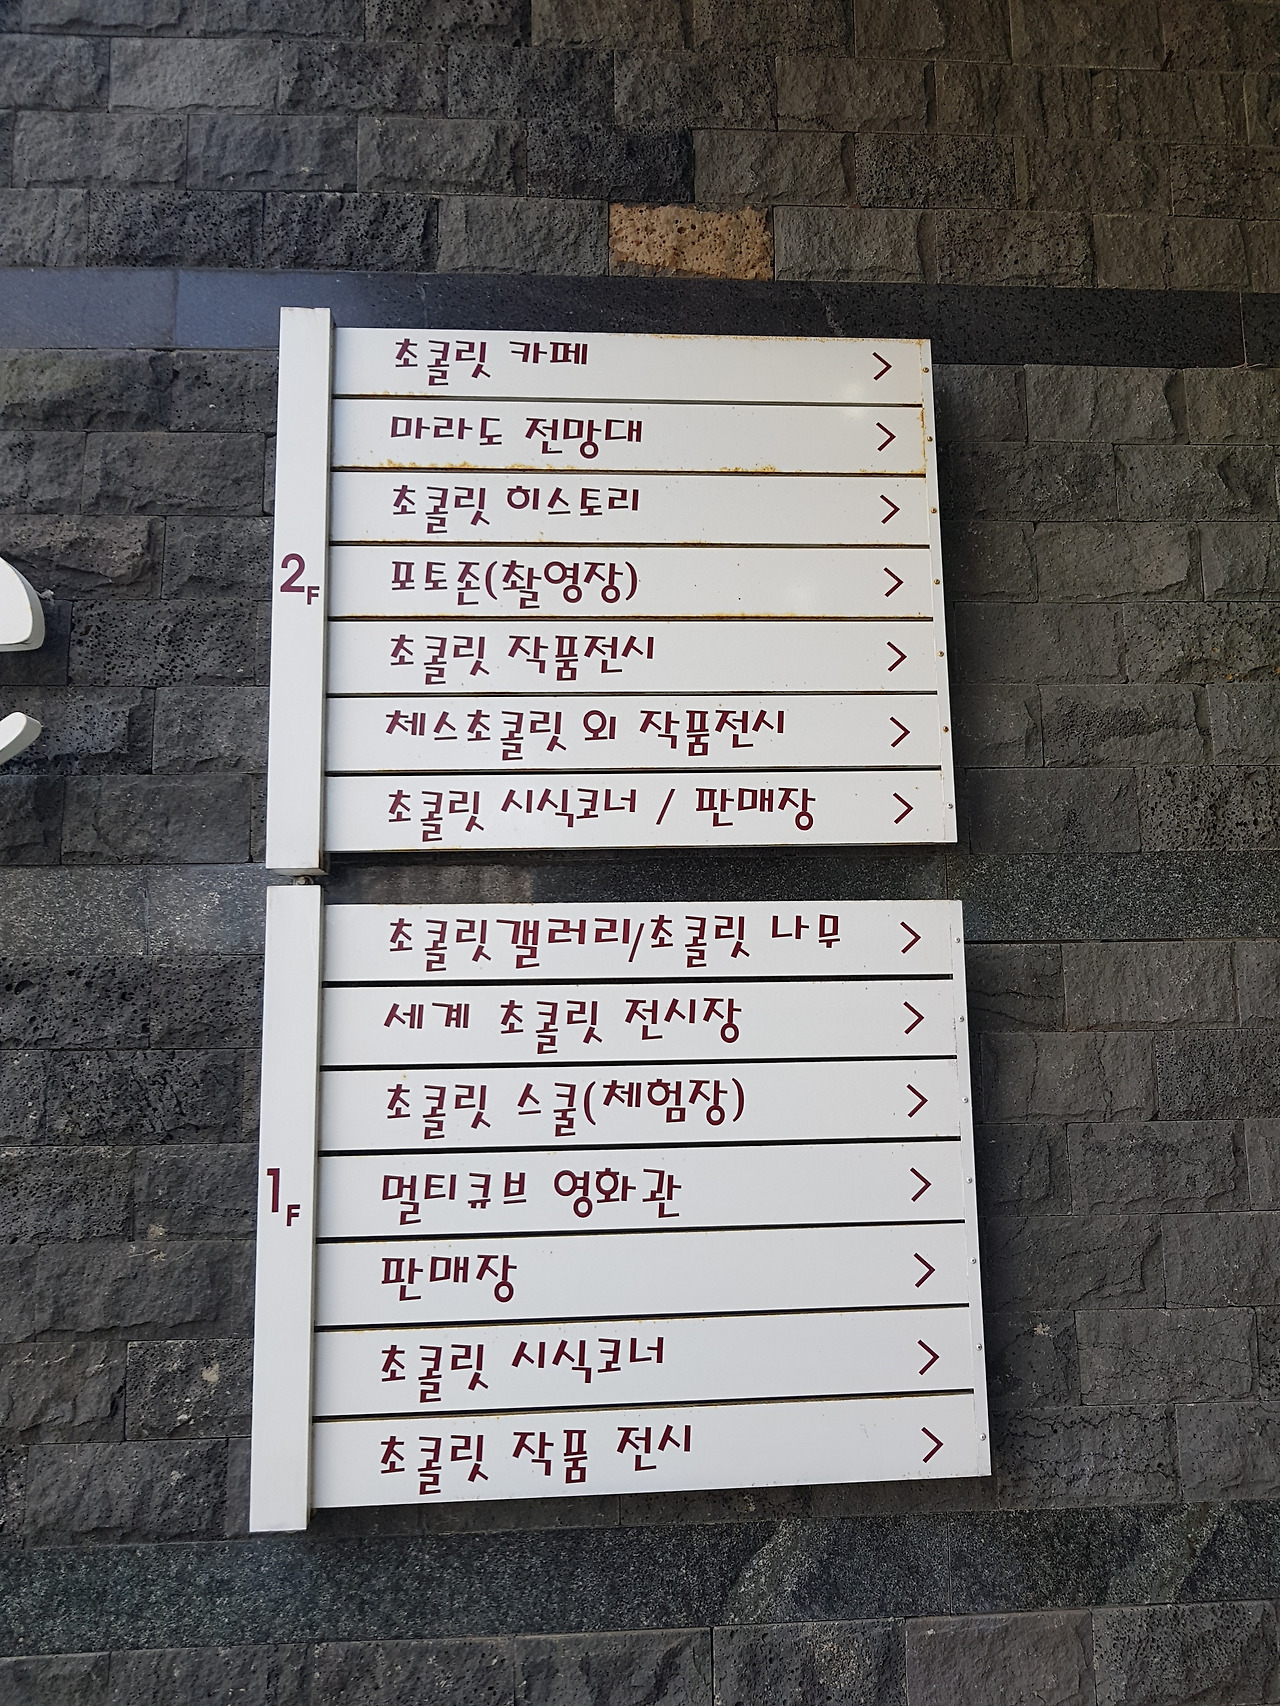 2F
초콜릿 카페 >
마라도 전망대 >
초콜릿 히스토리 >
포토존(촬영장) >
초콜릿 작품전시 >
체스초콜릿 외 작품전시 >
초콜릿 시식코너 / 판매장 >
1F
초콜릿갤러리/초콜릿 나무 >
세계 초콜릿 전시장 >
초콜릿 스쿨(체험장) >
멀티큐브 영화관 >
판매장 >
초콜릿 시식코너 >
초콜릿 작품 전시 >